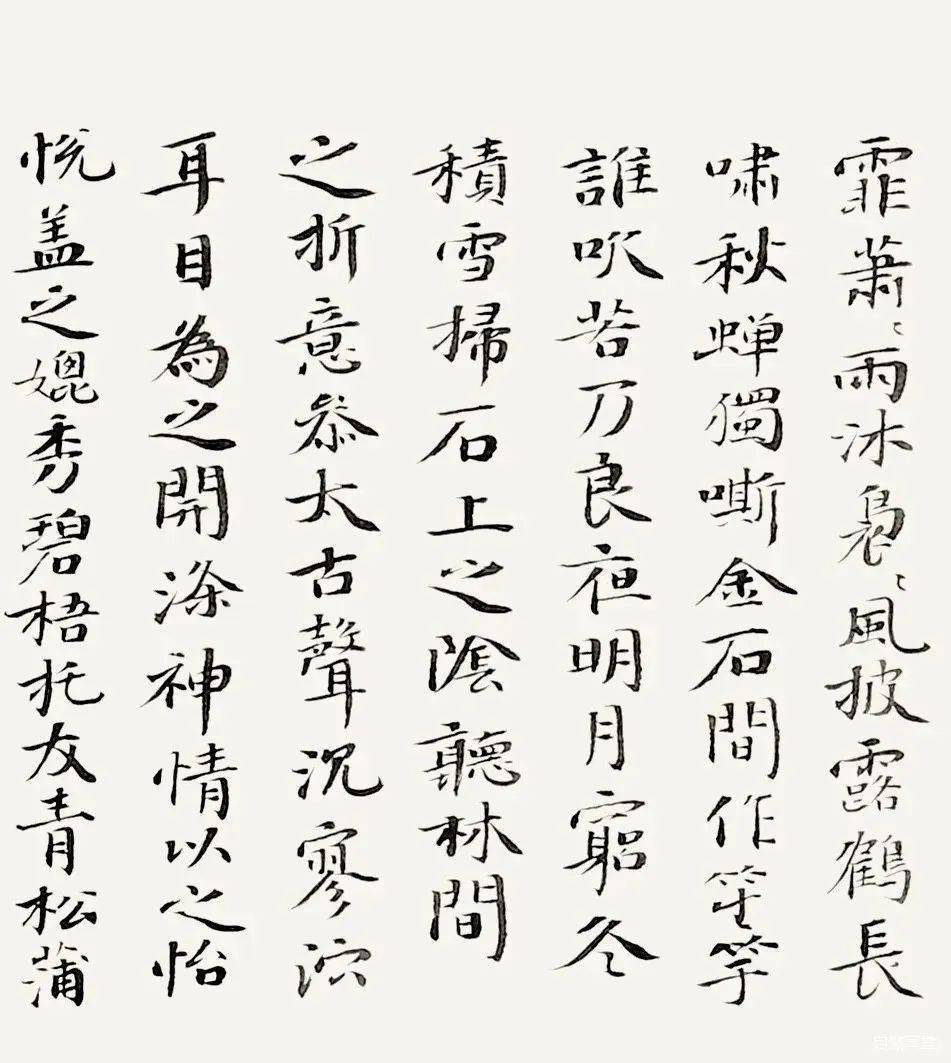 霏萧〻雨沐袅〻风披露鶴長
嘯秋蟬獨嘶金石間作笙竽
誰吹若乃良夜明月窮冬
積雪掃石上之陰聽林間
之折意叅太古聲沉寥泬
耳目為之開滌神情以之怡
悅盖之媲秀碧梧托友青松蒲